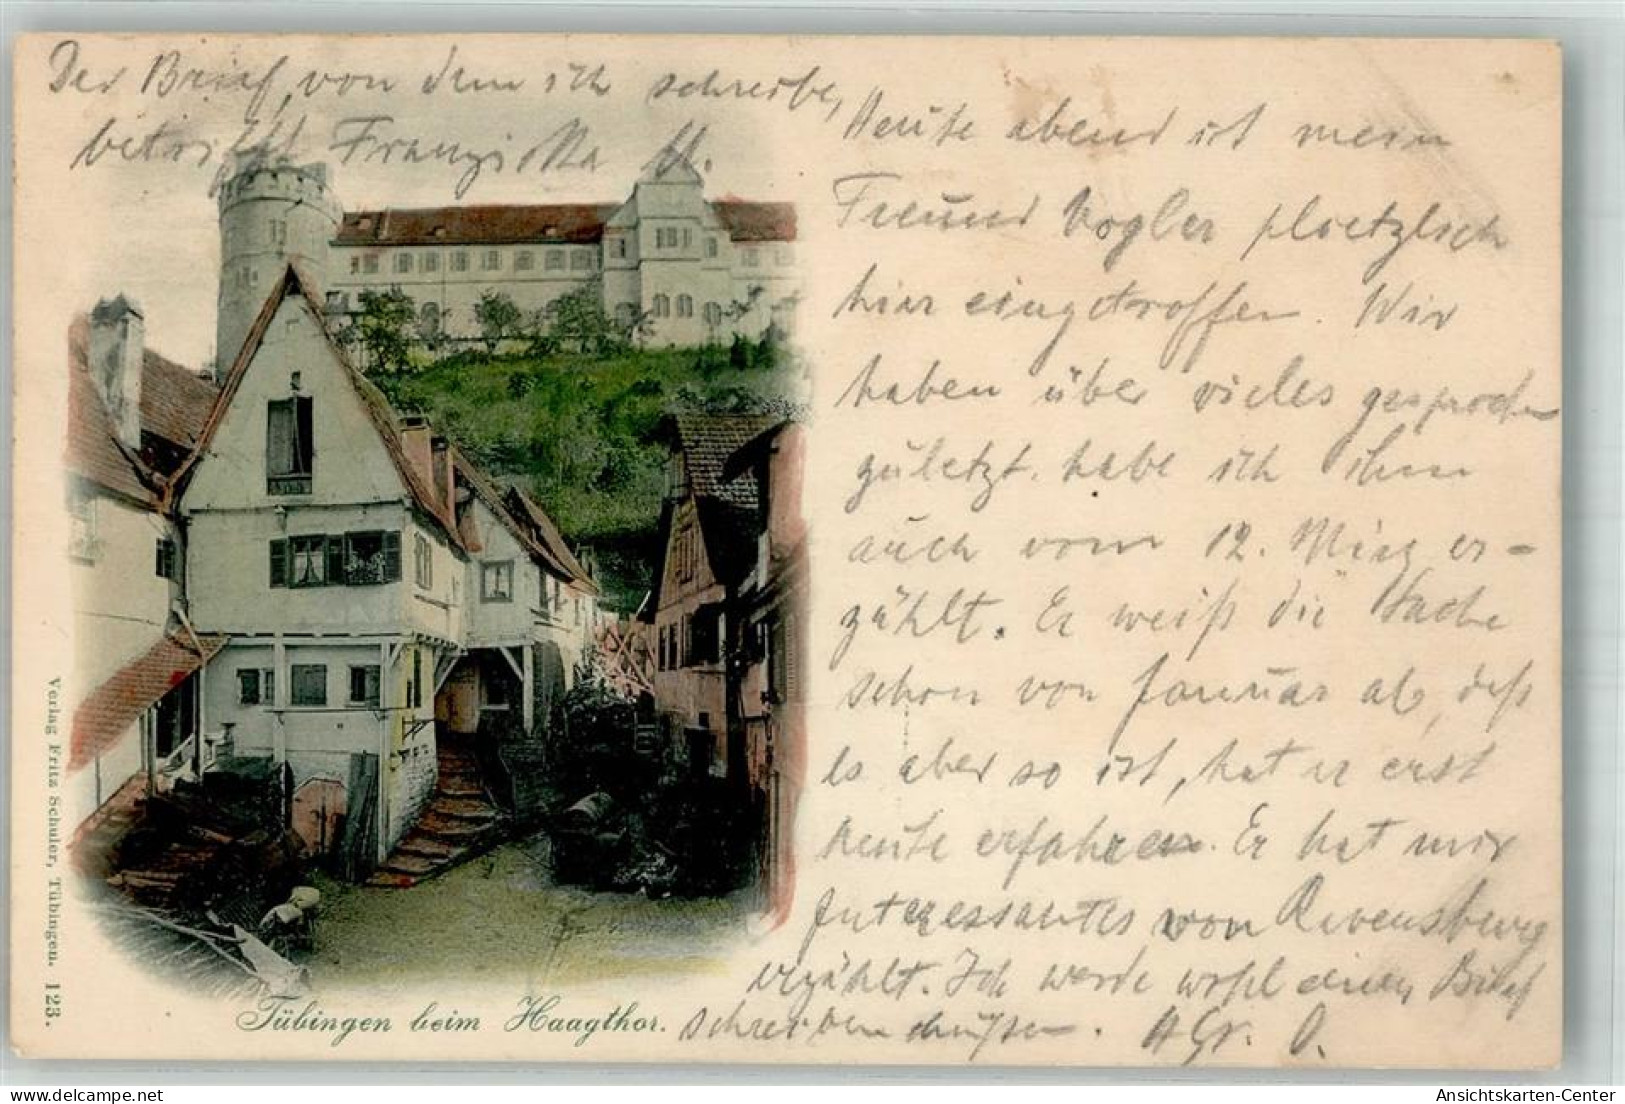 Der Brief, von dem ich schreibe,
betrifft Franziska H.
Heute abend ist mein
Freund Vogler ploetzlich
hier eingetroffen. Wir
haben über vieles gesprochen
zuletzt habe ich ihm
auch vom 12. März er-
zählt. Er weiß die Sache
schon von Januar ab, daß
es aber so ist, hat er erst
heute erfahren. Er hat mir
Interessantes von Ravensberg
erzählt. Ich werde wohl einen Brief
schreiben müssen. HGr. O.
Tübingen beim Haagthor.
Verlag Fritz Schuler, Tübingen. 123.
Ansichtskarten-Center